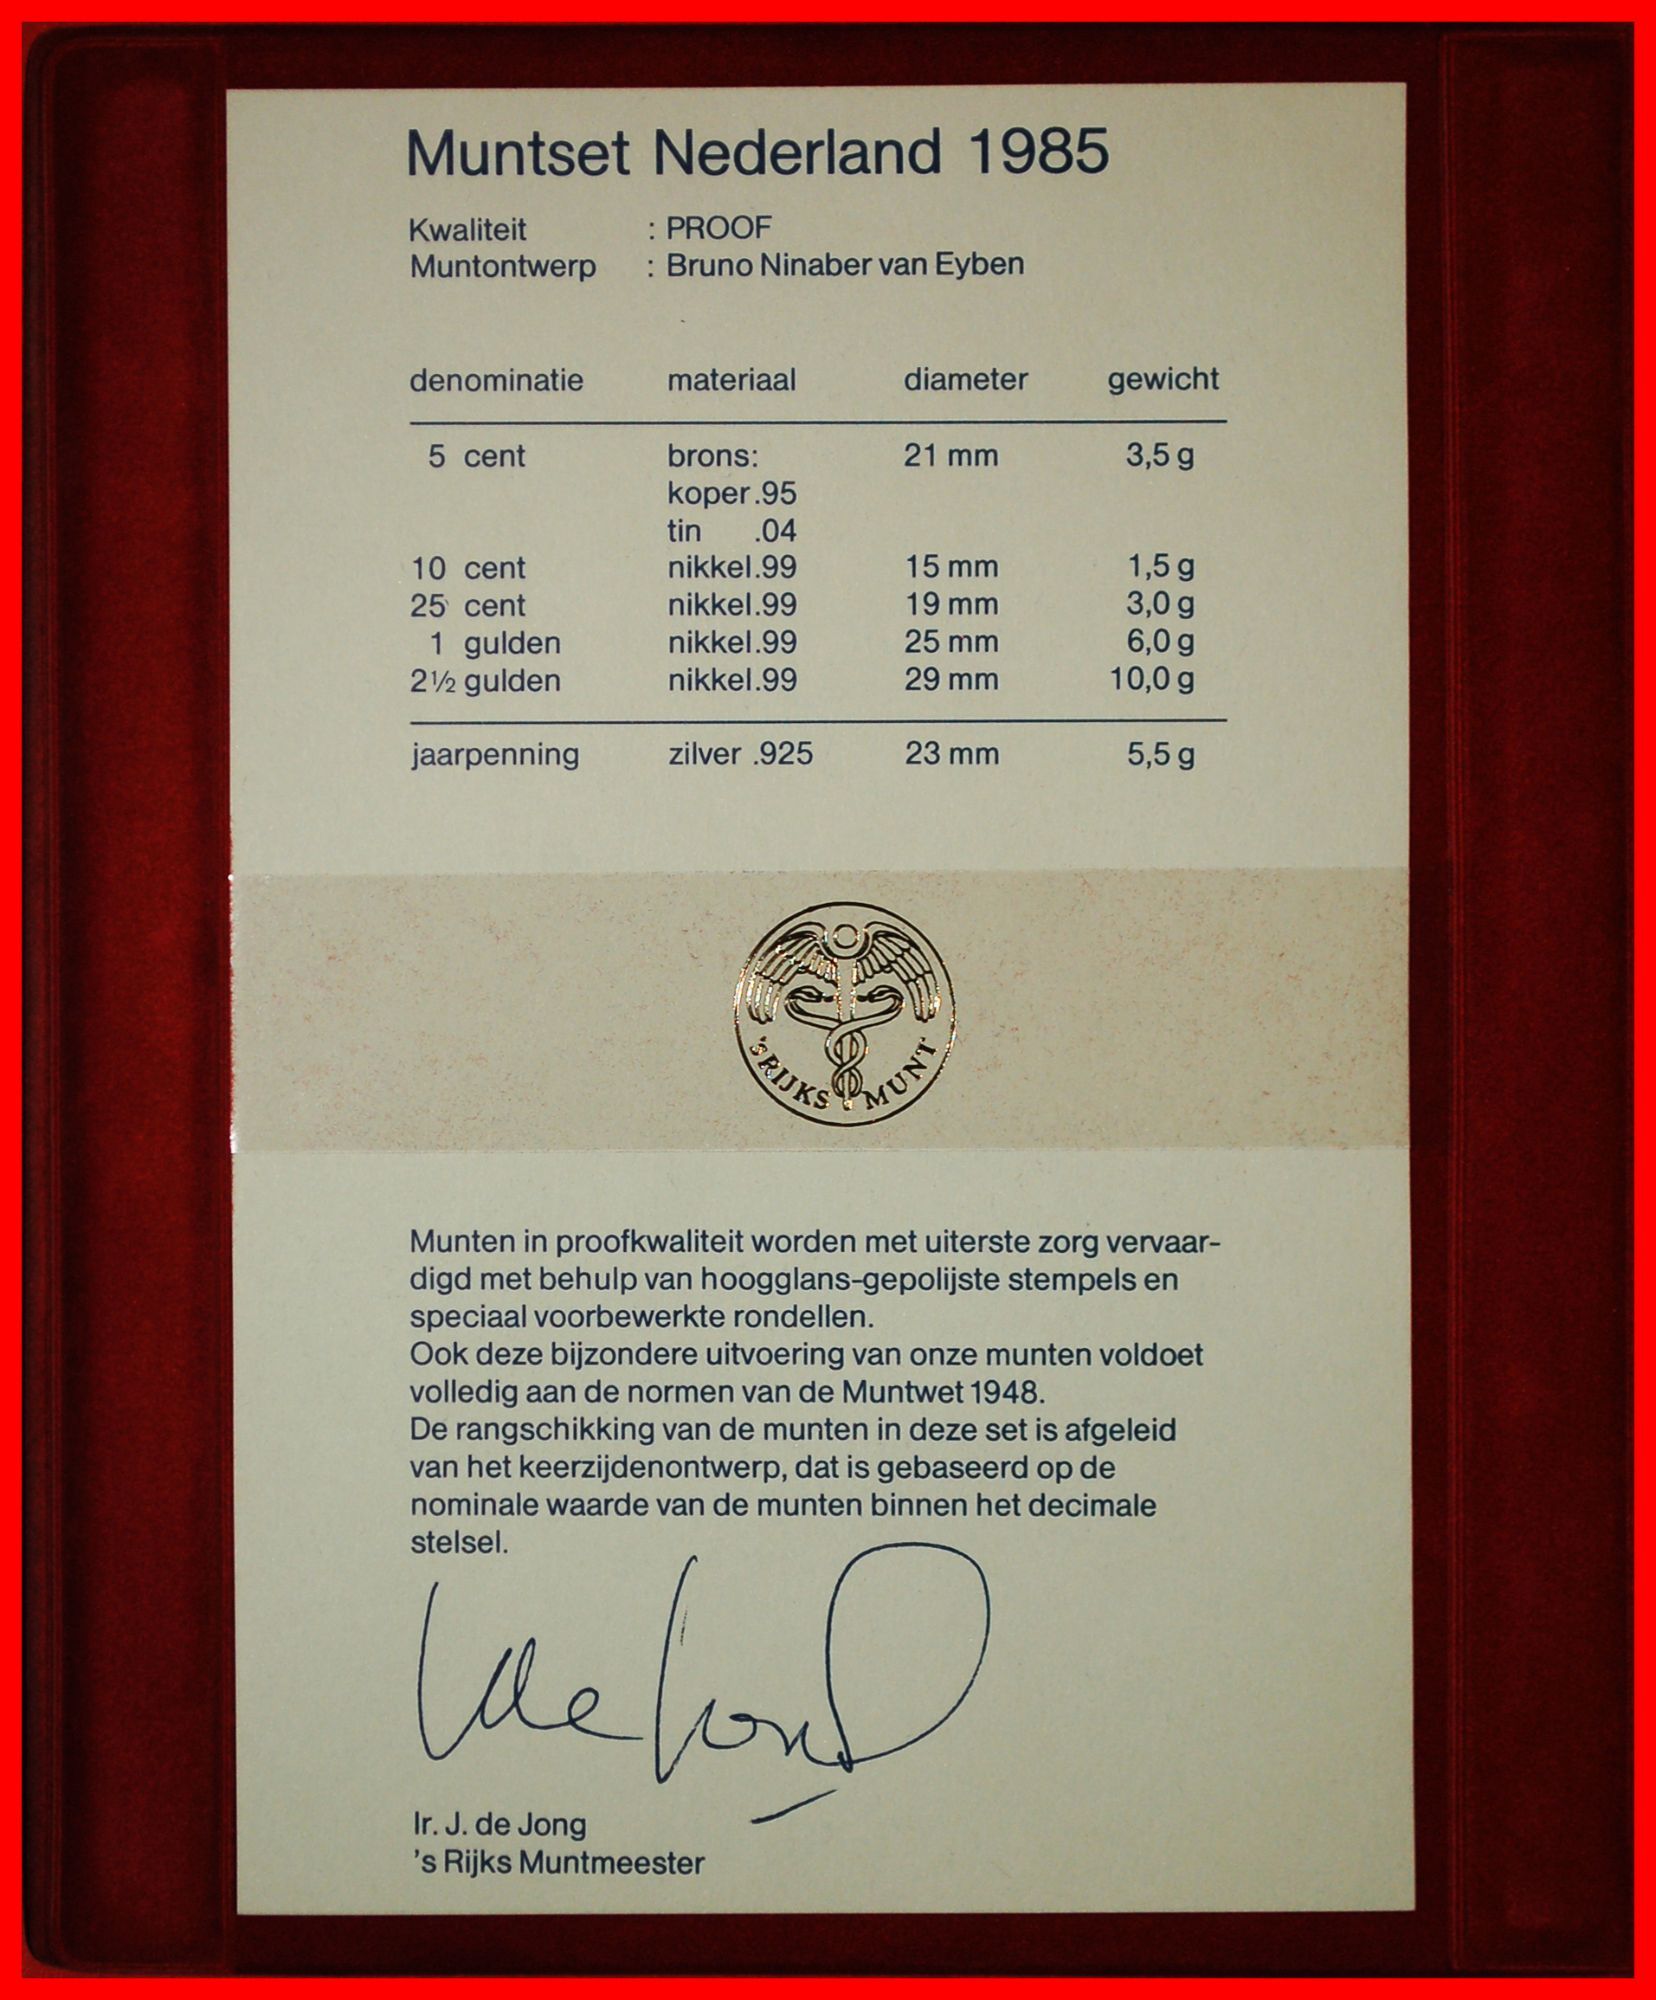 Muntset Nederland 1985
Kwaliteit : PROOF
Muntontwerp : Bruno Ninaber van Eyben
denominatie materiaal diameter gewicht
5 cent brons: 21 mm 3,5 g
koper .95
tin .04
10 cent nikkel .99 15 mm 1,5 g
25 cent nikkel .99 19 mm 3,0 g
1 gulden nikkel .99 25 mm 6,0 g
2½ gulden nikkel .99 29 mm 10,0 g
jaarpenning zilver .925 23 mm 5,5 g
's RIJKS MUNT
Munten in proofkwaliteit worden met uiterste zorg vervaar-
digd met behulp van hoogglans-gepolijste stempels en
speciaal voorbewerkte rondellen.
Ook deze bijzondere uitvoering van onze munten voldoet
volledig aan de normen van de Muntwet 1948.
De rangschikking van de munten in deze set is afgeleid
van het keerzijdenontwerp, dat is gebaseerd op de
nominale waarde van de munten binnen het decimale
stelsel.
Ir. J. de Jong
's Rijks Muntmeester